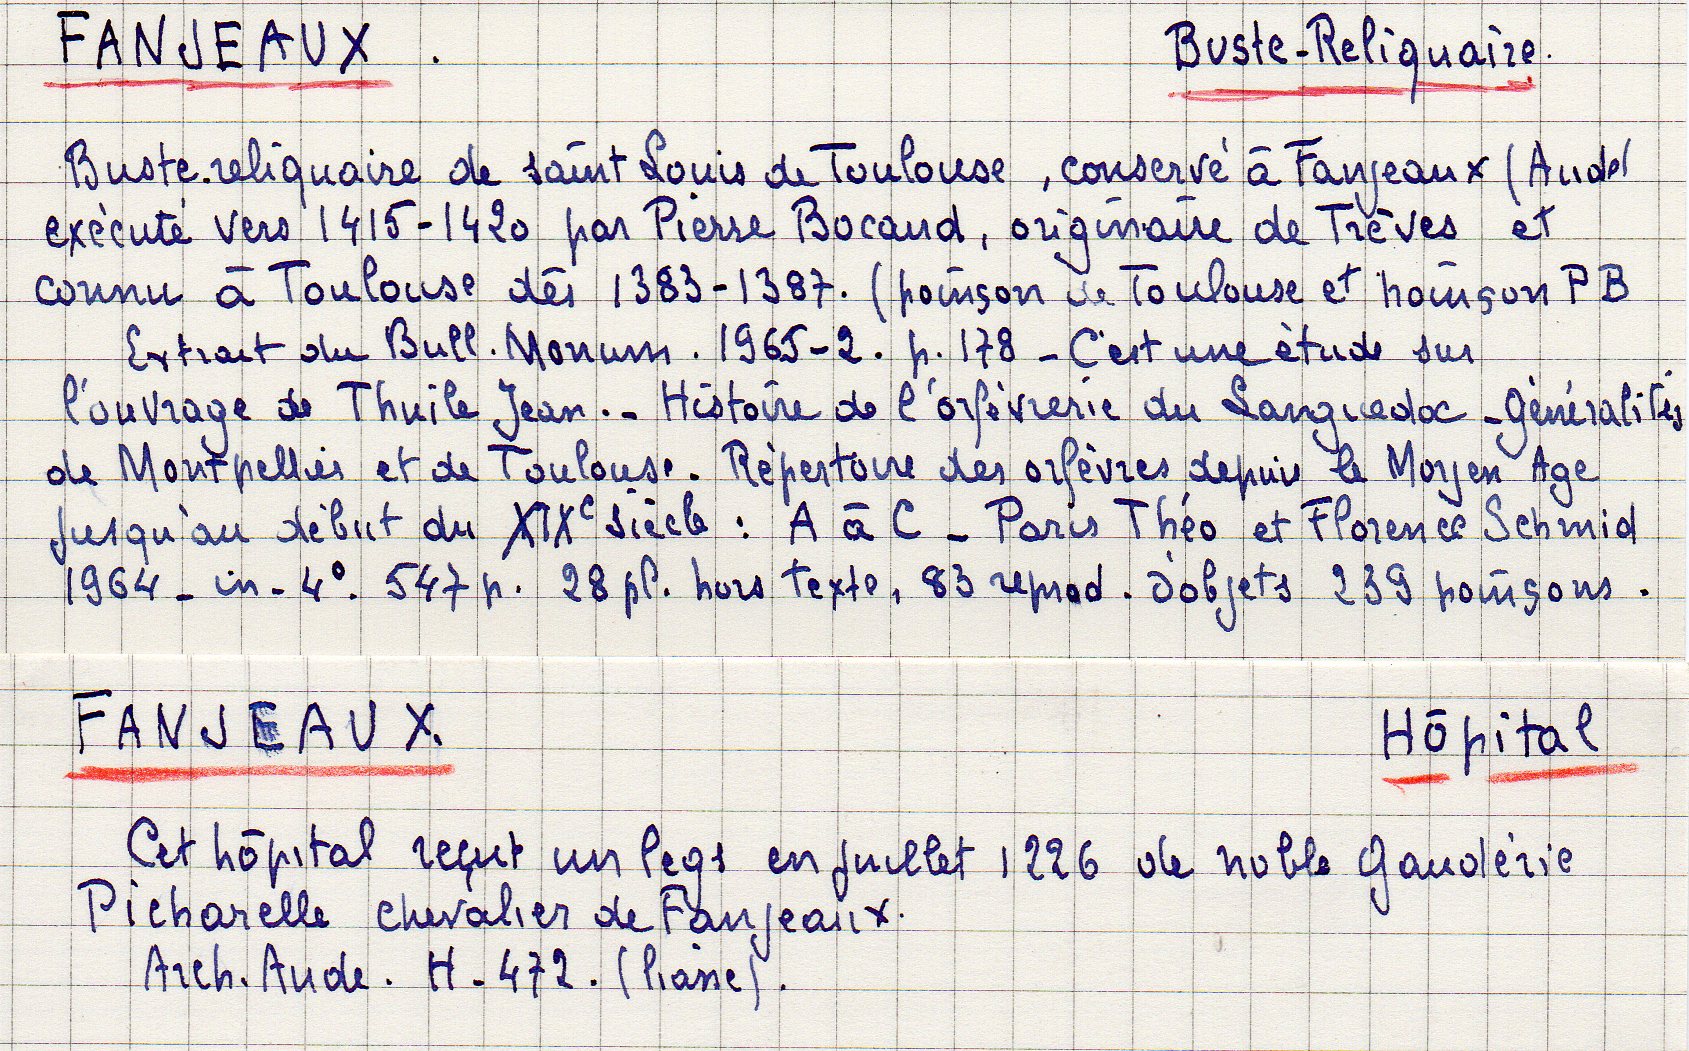 FANJEAUX . Buste-Reliquaire.
Buste-reliquaire de saint Louis de Toulouse, conservé à Fanjeaux (Aude)
exécuté vers 1415-1420 par Pierre Bocaud, originaire de Trèves et
connu à Toulouse dès 1383-1387. (poinçon de Toulouse et poinçon PB
Extrait du Bull. Monum. 1965-2. p. 178 - C'est une étude sur
l'ouvrage de Thuile Jean.- Histoire de l'orfèvrerie du Languedoc - Généralités
de Montpellier et de Toulouse. Répertoire des orfèvres depuis le Moyen Age
jusqu'au début du XIXe siècle : A à C - Paris Théo et Florence Schmid
1964 - in-4°. 547 p. 28 pl. hors texte, 83 reprod. d'objets 239 poinçons.
FANJEAUX. Hôpital
Cet hôpital reçut un legs en juillet 1226 de noble Gaudérie
Picharelle chevalier de Fanjeaux.
Arch. Aude. H-472. (liasse).